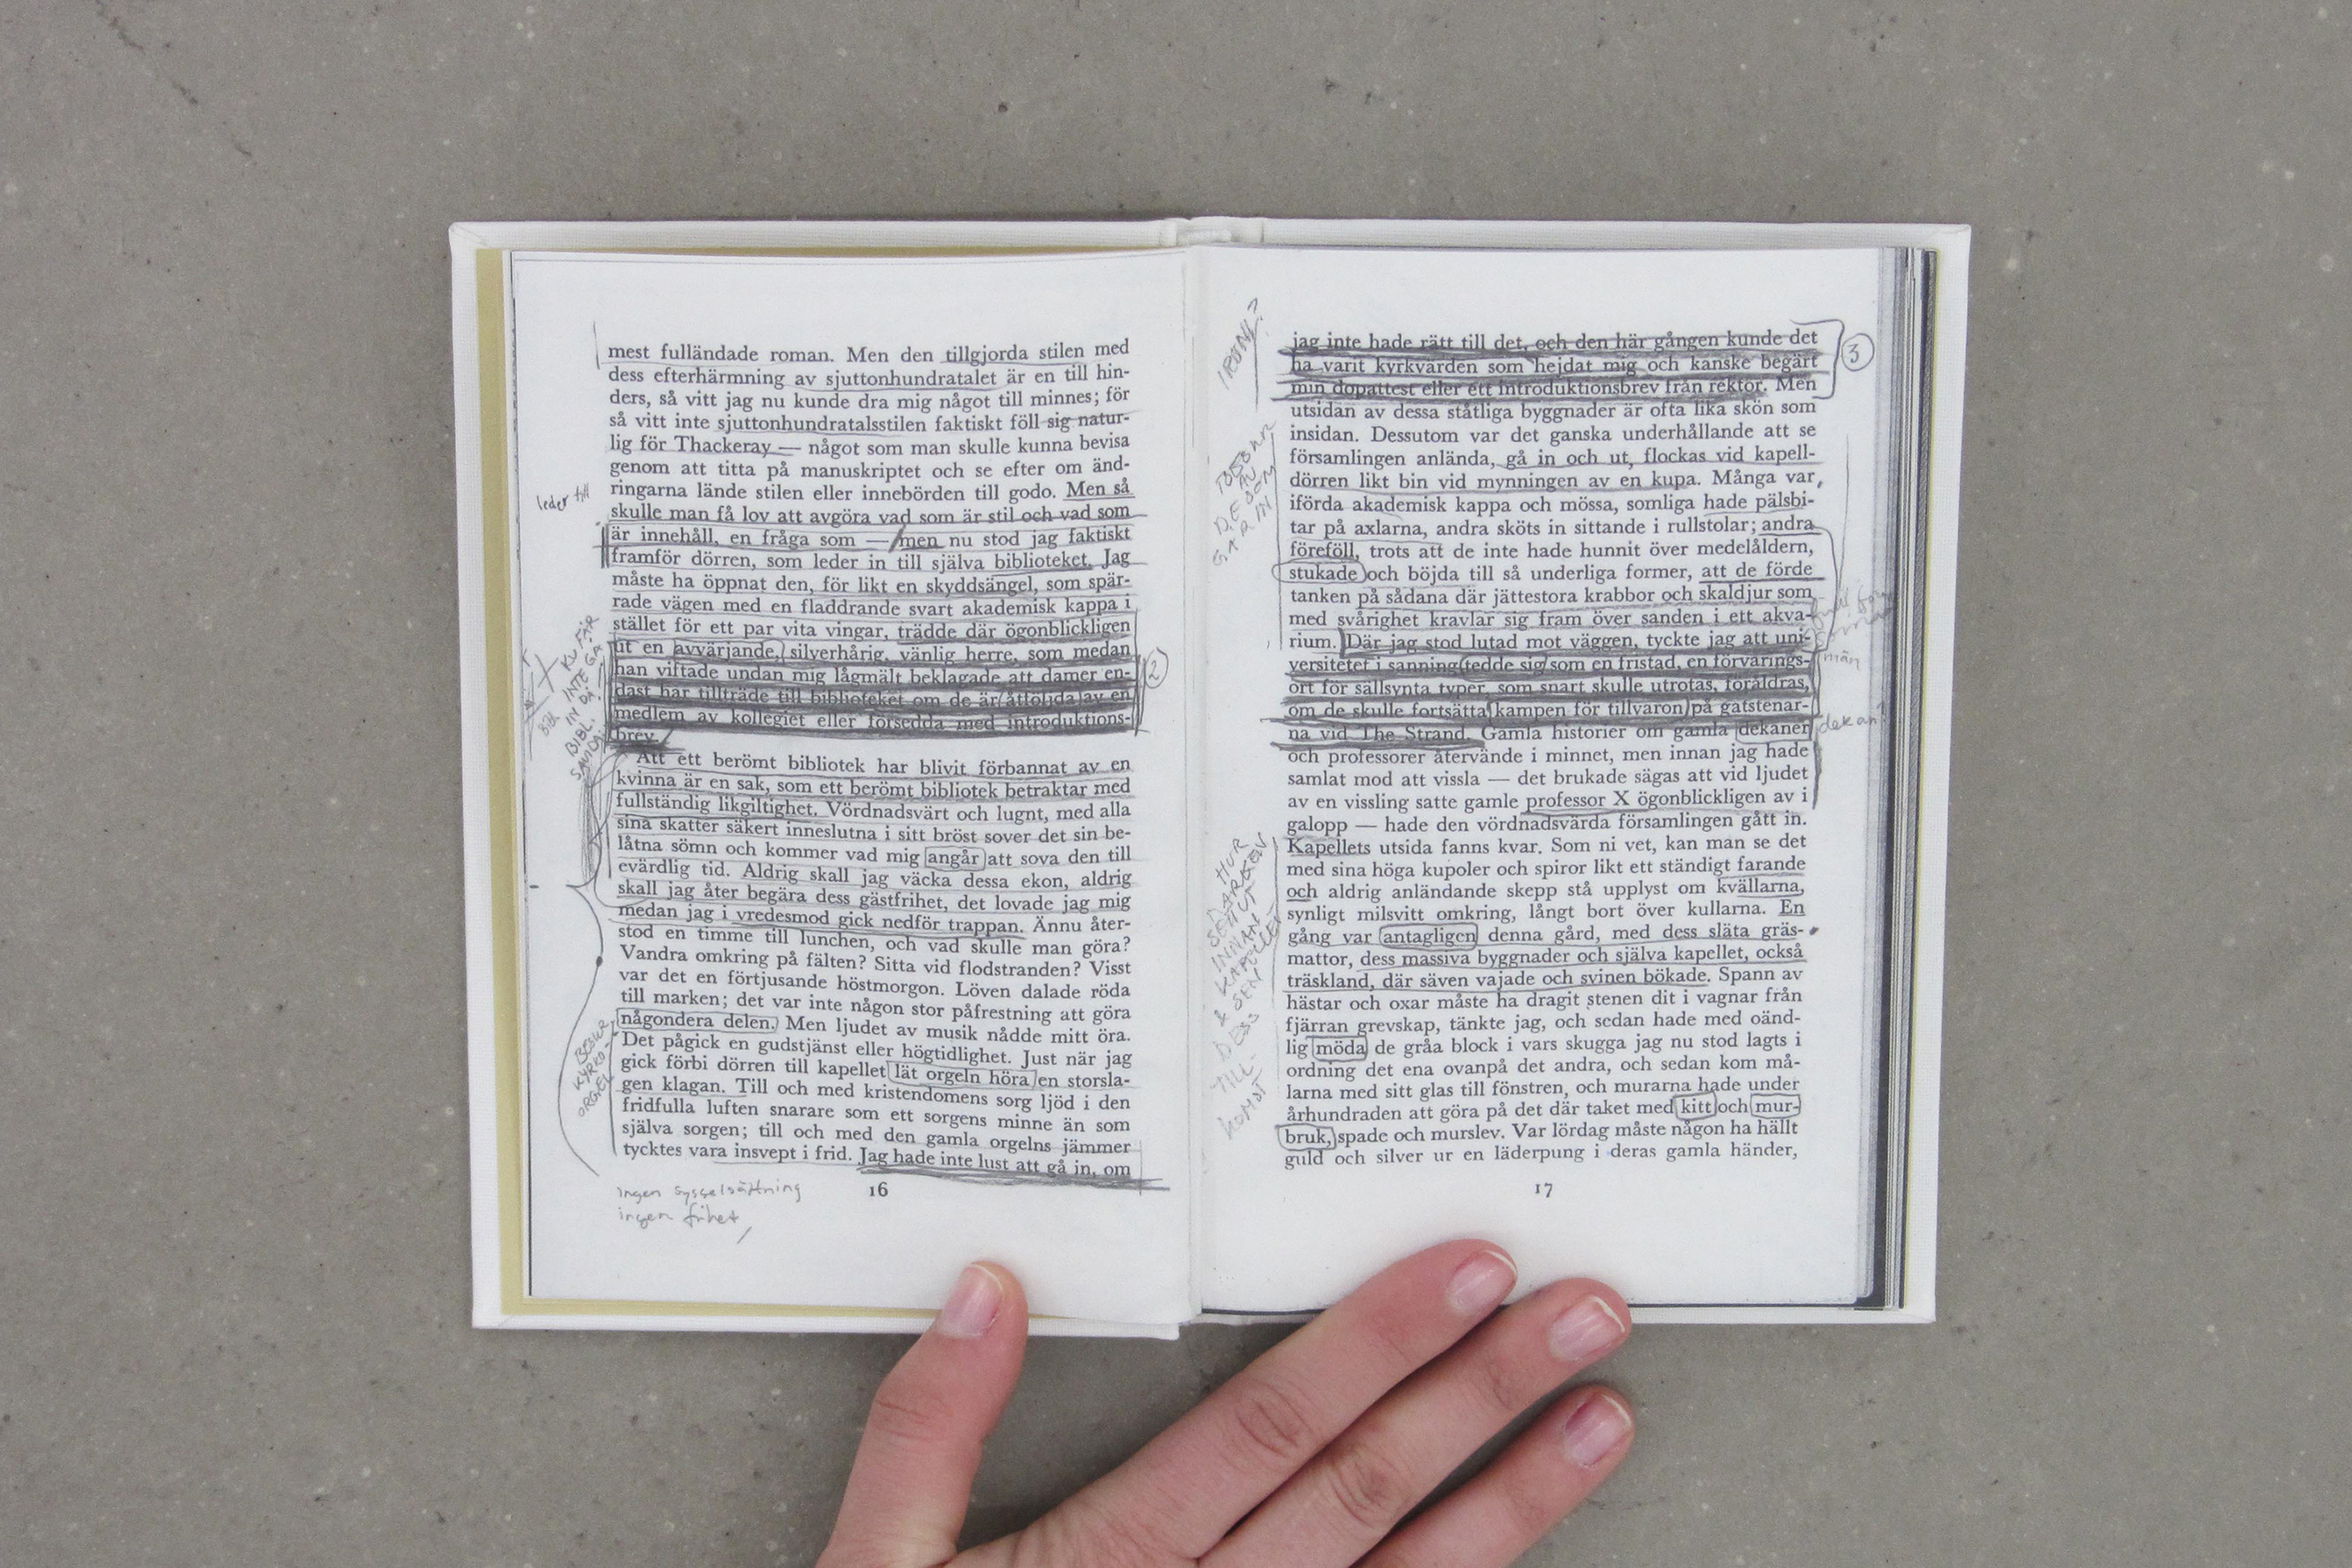 mest fulländade roman. Men den tillgjorda stilen med
dess efterhärmning av sjuttonhundratalet är en till hin-
ders, så vitt jag nu kunde dra mig något till minnes; för
så vitt inte sjuttonhundratalsstilen faktiskt föll sig natur-
lig för Thackeray — något som man skulle kunna bevisa
genom att titta på manuskriptet och se efter om änd-
ringarna lände stilen eller innebörden till godo. Men så
skulle man få lov att avgöra vad som är stil och vad som
är innehåll, en fråga som — men nu stod jag faktiskt
framför dörren, som leder in till själva biblioteket. Jag
måste ha öppnat den, för likt en skyddsängel, som spär-
rade vägen med en fladdrande svart akademisk kappa i
stället för ett par vita vingar, trädde där ögonblickligen
ut en avvärjande, silverhårig, vänlig herre, som medan
han viftade undan mig lågmält beklagade att damer en-
dast har tillträde till biblioteket om de är åtföljda av en
medlem av kollegiet eller försedda med introduktions-
brev.
Att ett berömt bibliotek har blivit förbannat av en
kvinna är en sak, som ett berömt bibliotek betraktar med
fullständig likgiltighet. Vördnadsvärt och lugnt, med alla
sina skatter säkert inneslutna i sitt bröst sover det sin be-
låtna sömn och kommer vad mig angår att sova den till
evärdlig tid. Aldrig skall jag väcka dessa ekon, aldrig
skall jag åter begära dess gästfrihet, det lovade jag mig
medan jag i vredesmod gick nedför trappan. Ännu åter-
stod en timme till lunchen, och vad skulle man göra?
Vandra omkring på fälten? Sitta vid flodstranden? Visst
var det en förtjusande höstmorgon. Löven dalade röda
till marken; det var inte någon stor påfrestning att göra
någondera delen. Men ljudet av musik nådde mitt öra.
Det pågick en gudstjänst eller högtidlighet. Just när jag
gick förbi dörren till kapellet lät orgeln höra en storsla-
gen klagan. Till och med kristendomens sorg ljöd i den
fridfulla luften snarare som ett sorgens minne än som
själva sorgen; till och med den gamla orgelns jämmer
tycktes vara insvept i frid. Jag hade inte lust att gå in, om
16
leder till
KV FÅR
INTE GÅ
IN DÅ
BIBL.
2
BESKR
KYRKO-
ORGEL
ingen sysselsättning
ingen frihet
jag inte hade rätt till det, och den här gången kunde det
ha varit kyrkvärden som hejdat mig och kanske begärt
min dopattest eller ett introduktionsbrev från rektor. Men
utsidan av dessa ståtliga byggnader är ofta lika skön som
insidan. Dessutom var det ganska underhållande att se
församlingen anlända, gå in och ut, flockas vid kapell-
dörren likt bin vid mynningen av en kupa. Många var
iförda akademisk kappa och mössa, somliga hade pälsbi-
tar på axlarna, andra sköts in sittande i rullstolar; andra
föreföll, trots att de inte hade hunnit över medelåldern,
stukade och böjda till så underliga former, att de förde
tanken på sådana där jättestora krabbor och skaldjur som
med svårighet kravlar sig fram över sanden i ett akva-
rium. Där jag stod lutad mot väggen, tyckte jag att uni-
versitetet i sanning tedde sig som en fristad, en förvarings-
ort för sällsynta typer, som snart skulle utrotas, föråldras,
om de skulle fortsätta kampen för tillvaron på gatstenar-
na vid The Strand. Gamla historier om gamla dekaner
och professorer återvände i minnet, men innan jag hade
samlat mod att vissla — det brukade sägas att vid ljudet
av en vissling satte gamle professor X ögonblickligen av i
galopp — hade den vördnadsvärda församlingen gått in.
Kapellets utsida fanns kvar. Som ni vet, kan man se det
med sina höga kupoler och spiror likt ett ständigt farande
och aldrig anländande skepp stå upplyst om kvällarna,
synligt milsvitt omkring, långt bort över kullarna. En
gång var antagligen denna gård, med dess släta gräs-
mattor, dess massiva byggnader och själva kapellet, också
träskland, där säven vajade och svinen bökade. Spann av
hästar och oxar måste ha dragit stenen dit i vagnar från
fjärran grevskap, tänkte jag, och sedan hade med oänd-
lig möda de gråa block i vars skugga jag nu stod lagts i
ordning det ena ovanpå det andra, och sedan kom må-
larna med sitt glas till fönstren, och murarna hade under
århundraden att göra på det där taket med kitt och mur-
bruk, spade och murslev. Var lördag måste någon ha hällt
guld och silver ur en läderpung i deras gamla händer,
17
IRONI?
3
BESKR
AV
DE SOM
GÅR IN
män
dekan?
HUR
DET SÅG UT
INNAN
KAPELLET
& SEN
DESS
TILL-
KOMST